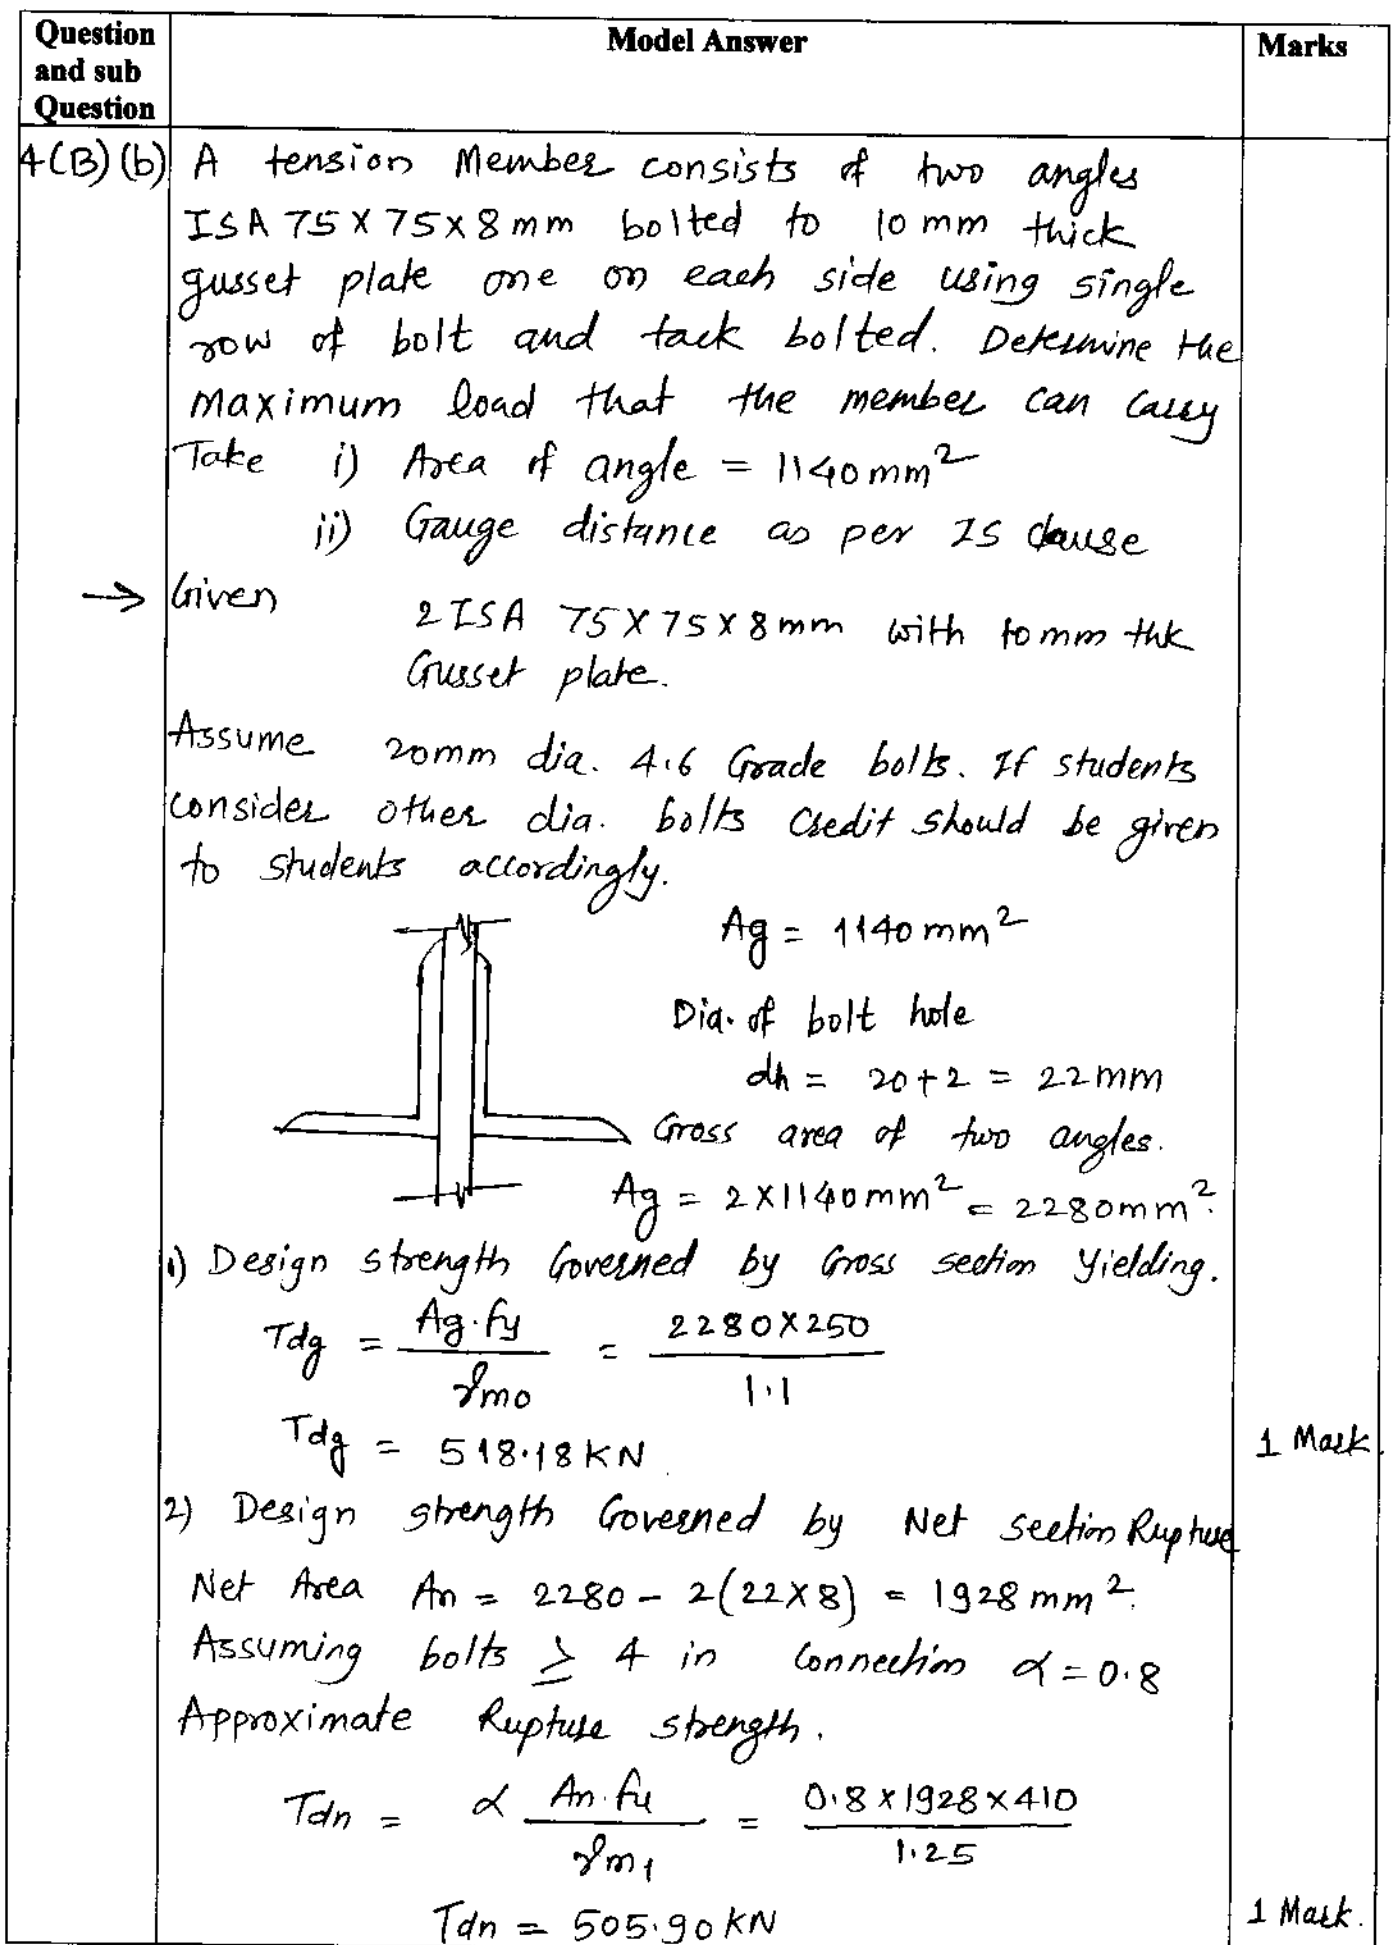 Question and sub Question Model Answer Marks
4(B)(b) A tension Member consists of two angles
ISA 75 X 75 x 8 mm bolted to 10 mm thick
gusset plate one on each side using single
row of bolt and tack bolted. Determine the
maximum load that the member can carry
Take i) Area of angle = 1140 mm²
ii) Gauge distance as per IS clause
→ Given 2 ISA 75 X 75 x 8 mm with 10 mm thk
Gusset plate.
Assume 20mm dia. 4.6 Grade bolts. If students
consider other dia. bolts Credit should be given
to students accordingly.
Ag = 1140 mm²
Dia. of bolt hole
dh = 20 + 2 = 22 mm
Gross area of two angles.
Ag = 2 X 1140 mm² = 2280 mm².
1) Design strength Governed by Gross section Yielding.
Tdg = Ag.fy / γmo = 2280 X 250 / 1.1
Tdg = 518.18 KN 1 Mark.
2) Design strength Governed by Net section Rupture
Net Area An = 2280 - 2(22 X 8) = 1928 mm².
Assuming bolts ≥ 4 in Connection α = 0.8
Approximate Rupture strength.
Tdn = α An.fu / γm1 = 0.8 x 1928 x 410 / 1.25
Tdn = 505.90 KN 1 Mark.